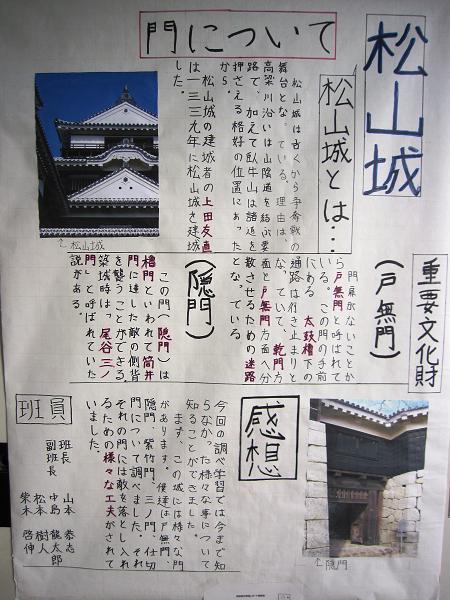 松山城
門について
松山城とは…
松山城は古くから争奪戦の
舞台となっている。理由は、
高梁川沿いは山陰道を結ぶ要
路で、加えて臥牛山は諸道を
押さえる格好の位置にあった
から。
松山城の建城者の上田友直
は一三三九年に松山城を建城
した。
↑松山城
重要文化財
(戸無門)
門扉がないことか
ら戸無門と呼ばれて
いる。この門の手前
にある 太鼓櫓下の
通路は行き止まりと
なっていて、乾門方
面と戸無門方面へ分
散させるための迷路
となっている
(隠門)
この門(隠門)は
櫓門といわれて筒井
門に達した敵の側背
を襲うことができる。
築城時は、尾谷三ノ
門」と呼ばれていた
説がある。
感想
今回の調べ学習では今まで知
らなかった様々な事について
知ることができました。
まず、この城には様々な門
があります。僕達は戸無門、
隠門、紫竹門、三ノ門、仕切
門について調べました。それ
ぞれの門には敵を落とし入れ
るための様々な工夫がされて
いました。
↑隠門
班員
班長 山本 泰志
副班長 中島 龍太郎
松本 樹人
柴木 啓伸